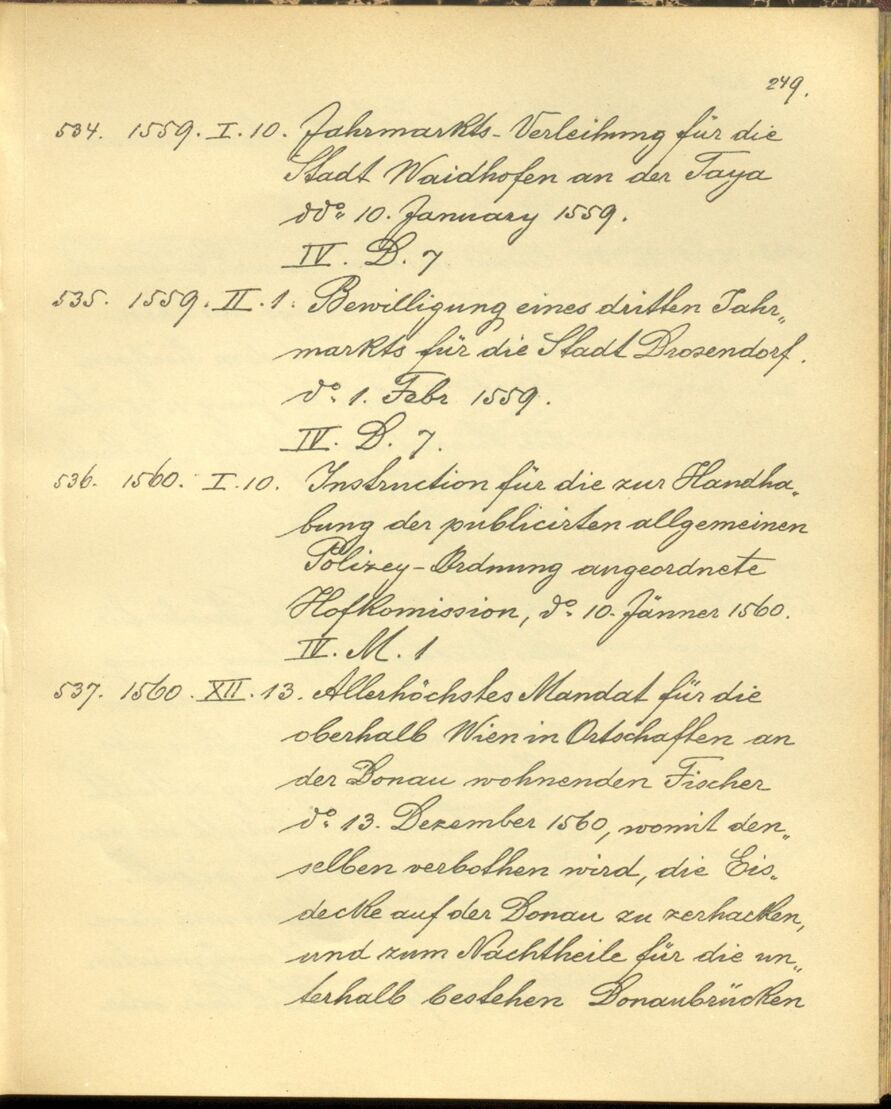 249.
534. 1559. I. 10. Jahrmarkts-Verleihung für die
Stadt Waidhofen an der Taya
ddo: 10. January 1559.
IV. D. 7
535. 1559. II. 1. Bewilligung eines dritten Jahr„
markts für die Stadt Drosendorf.
do: 1. Febr 1559.
IV. D. 7.
536. 1560. I. 10. Instruction für die zur Handha„
bung der publicirten allgemeinen
Polizey-Ordnung angeordnete
Hofkomission, do: 10. Jänner 1560.
IV. M. 1
537. 1560. XII. 13. Allerhöchstes Mandat für die
oberhalb Wien in Ortschaften an
der Donau wohnenden Fischer
do: 13. Dezember 1560, womit den„
selben verbothen wird, die Eis„
decke auf der Donau zu zerhacken,
und zum Nachtheile für die un„
terhalb bestehen Donaubrücken